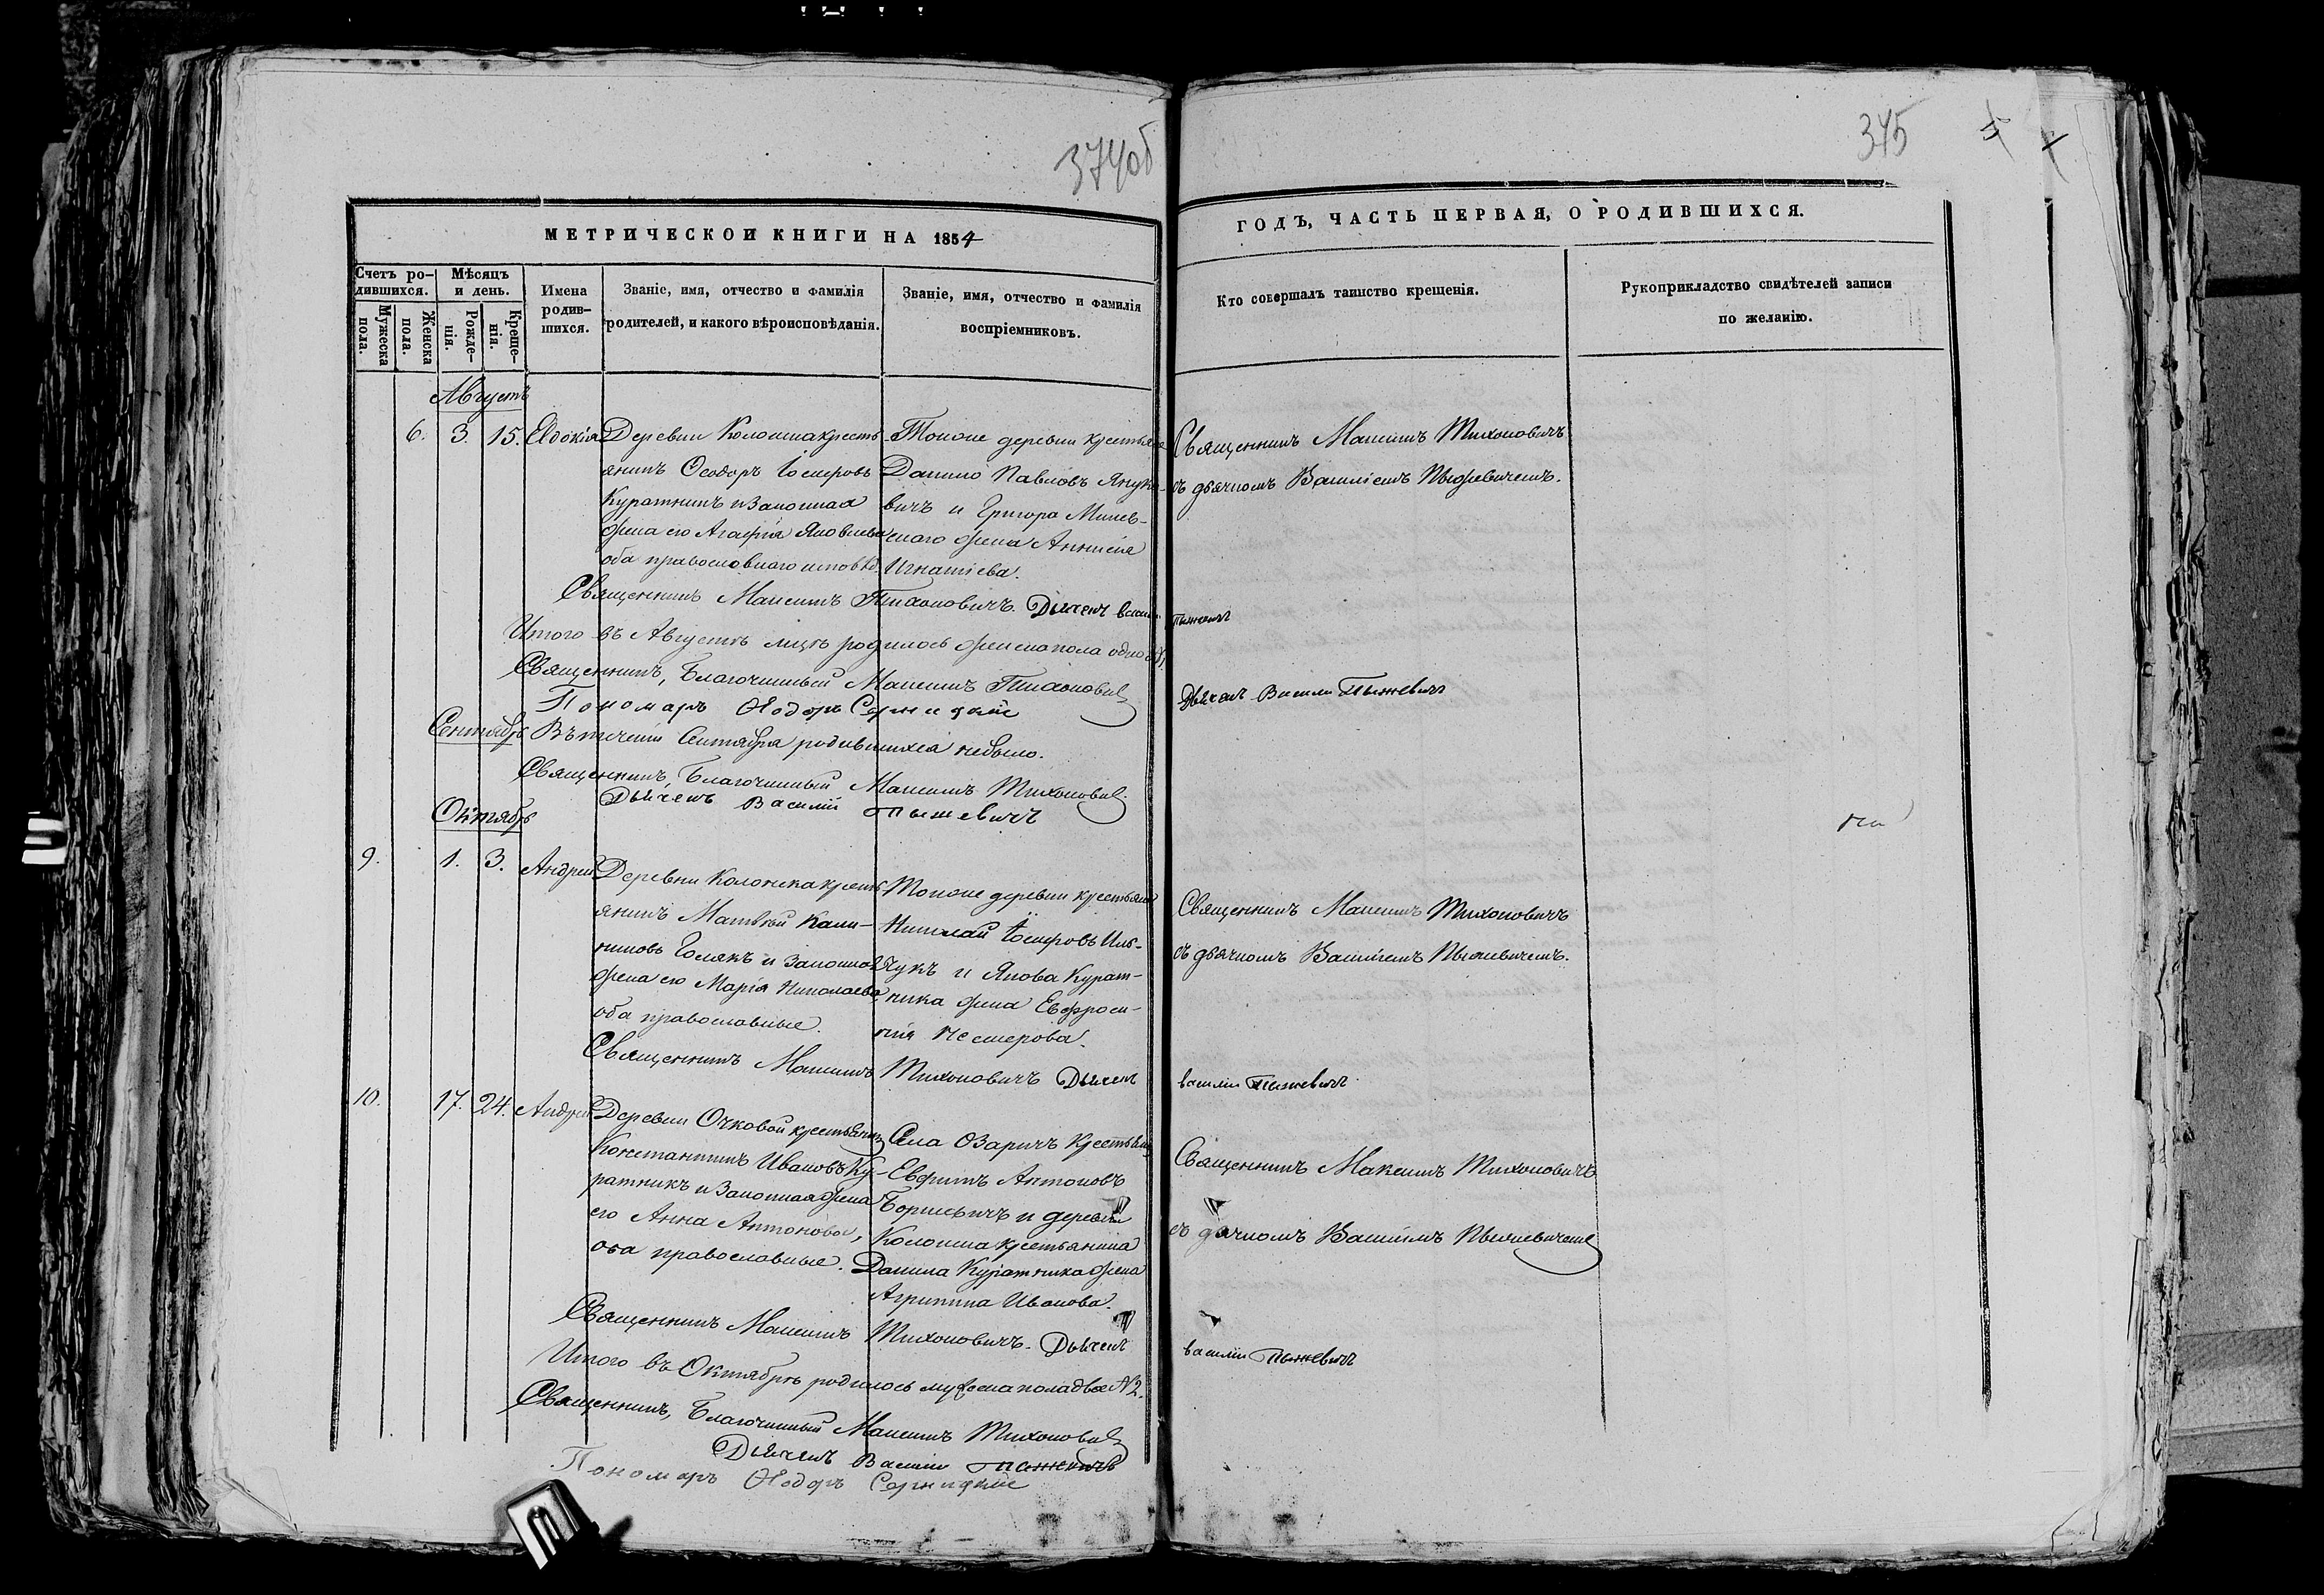 374об
375
МЕТРИЧЕСКОЙ КНИГИ НА 1854
ГОДЪ, ЧАСТЬ ПЕРВАЯ, О РОДИВШИХСЯ.
Счетъ ро-
дившихся.
Мужеска
пола.
Женска
пола.
Мѣсяцъ
и день.
Рожде-
нія.
Креще-
нія.
Имена
родив-
шихся.
Званіе, имя, отчество и фамилія
родителей, и какого вѣроисповѣданія.
Званіе, имя, отчество и фамилія
воспріемниковъ.
Кто совершалъ таинство крещенія.
Рукоприкладство свидѣтелей записи
по желанію.
Августъ
6. 3. 15. Евдокія
Деревни Колонска кресть
янинъ Ѳеодоръ Іосифовъ
Куратникъ и Законная
жена его Агафія Яковлева
оба православного исповѣд.
Тойже деревни крестьяне
Данило Павловъ
вичъ и Григора
жена Аннисія
Игнатіева.
Священникъ Максимъ Тихоновичъ
съ дьячкомъ Василіемъ Пыжевичемъ.
Священникъ Максимъ Тихоновичъ. Дьячекъ
Итого въ Августѣ мцѣ родилось женска пола одно
Священникъ, Благочинный Максимъ Тихоновичъ
Дьячекъ Василій Пыжевичъ
Пономаръ Ѳеодоръ
Сентябрь Въ теченіи Сентября родившихся небыло.
Священникъ, Благочинный Максимъ Тихоновичъ
Дьячекъ Василій Пыжевичъ
Октябрь
9. 1. 3. Андрей
Деревни Колонска кресть
янинъ Матвѣй Кали-
никовъ Голякъ и Законная
жена его Марія Николаева
оба православные.
Тойже деревни крестьяне
Николай Іосифовъ Иль-
чукъ и Якова Курат-
ника жена Евфроси-
нія Нестерова.
Священникъ Максимъ Тихоновичъ
съ дьячкомъ Василіемъ Пыжевичемъ.
Священникъ Максимъ Тихоновичъ Дьячекъ Василій Пыжевичъ
10. 17. 24. Андрей
Деревни Очковой крестьянинъ
Константинъ Ивановъ Ку-
ратникъ и Законная жена
его Анна Антонова,
оба православные.
Села Озаричъ крестьянинъ
Евфимъ Антоновъ
Борисевичъ и деревни
Колонска крестьянина
Данила Куратника жена
Агрипина Иванова.
Священникъ Максимъ Тихоновичъ
съ дьячкомъ Василіемъ Пыжевичемъ
Священникъ Максимъ Тихоновичъ. Дьячекъ Василій Пыжевичъ
Итого въ Октябрѣ родилось мужеска пола двое №2.
Священникъ, Благочинный Максимъ Тихоновичъ
Дьячекъ Василій Пыжевичъ
Пономаръ Ѳеодоръ